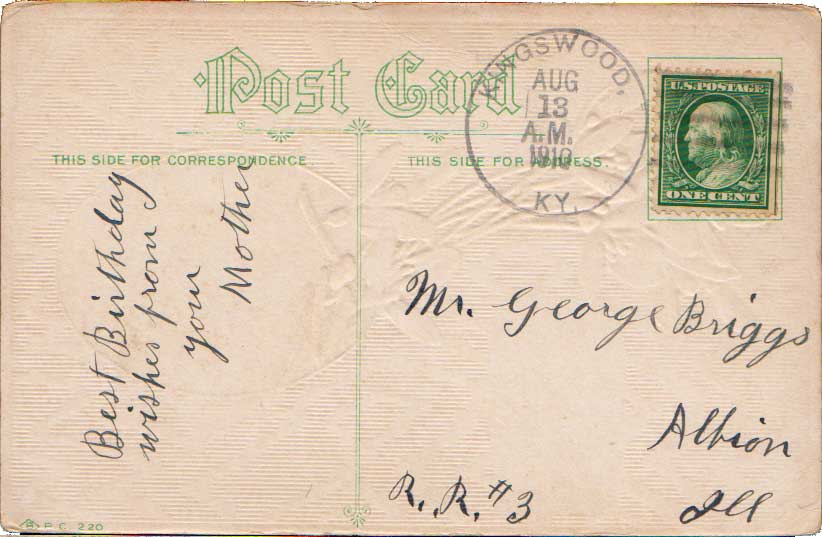 Post Card
THIS SIDE FOR CORRESPONDENCE.
THIS SIDE FOR ADDRESS.
KINGSWOOD,
AUG
13
A.M.
1910
KY.
U.S. POSTAGE
ONE CENT
Best Birthday
wishes from
your
Mother
Mr. George Briggs
Albion
R.R. #3
Ill
P C 220